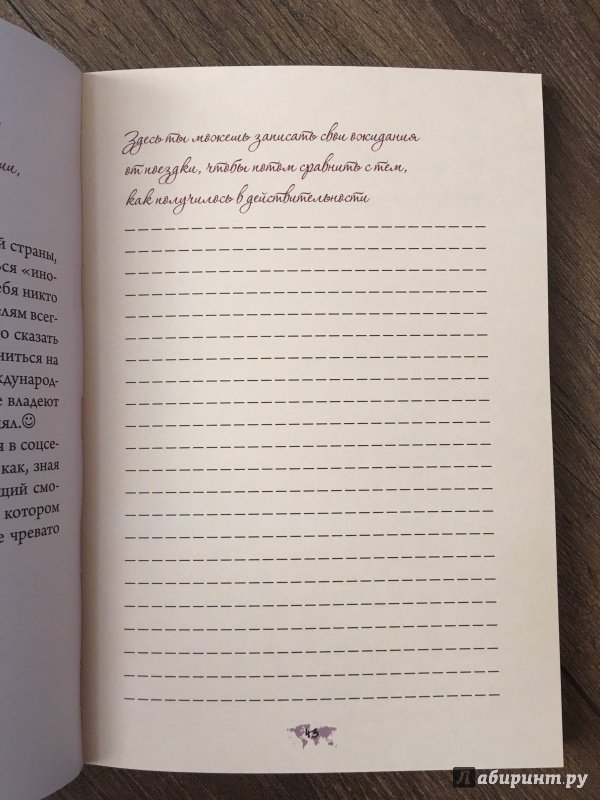 ии,
й страны,
ься «ино-
ебя никто
елям всег-
о сказать
ниться на
ждународ-
е владеют
нял.☺
я в соцсе-
как, зная
щий смо-
котором
е чревато
Здесь ты можешь записать свои ожидания
от поездки, чтобы потом сравнить с тем,
как получилось в действительности
43
Лабиринт.ру